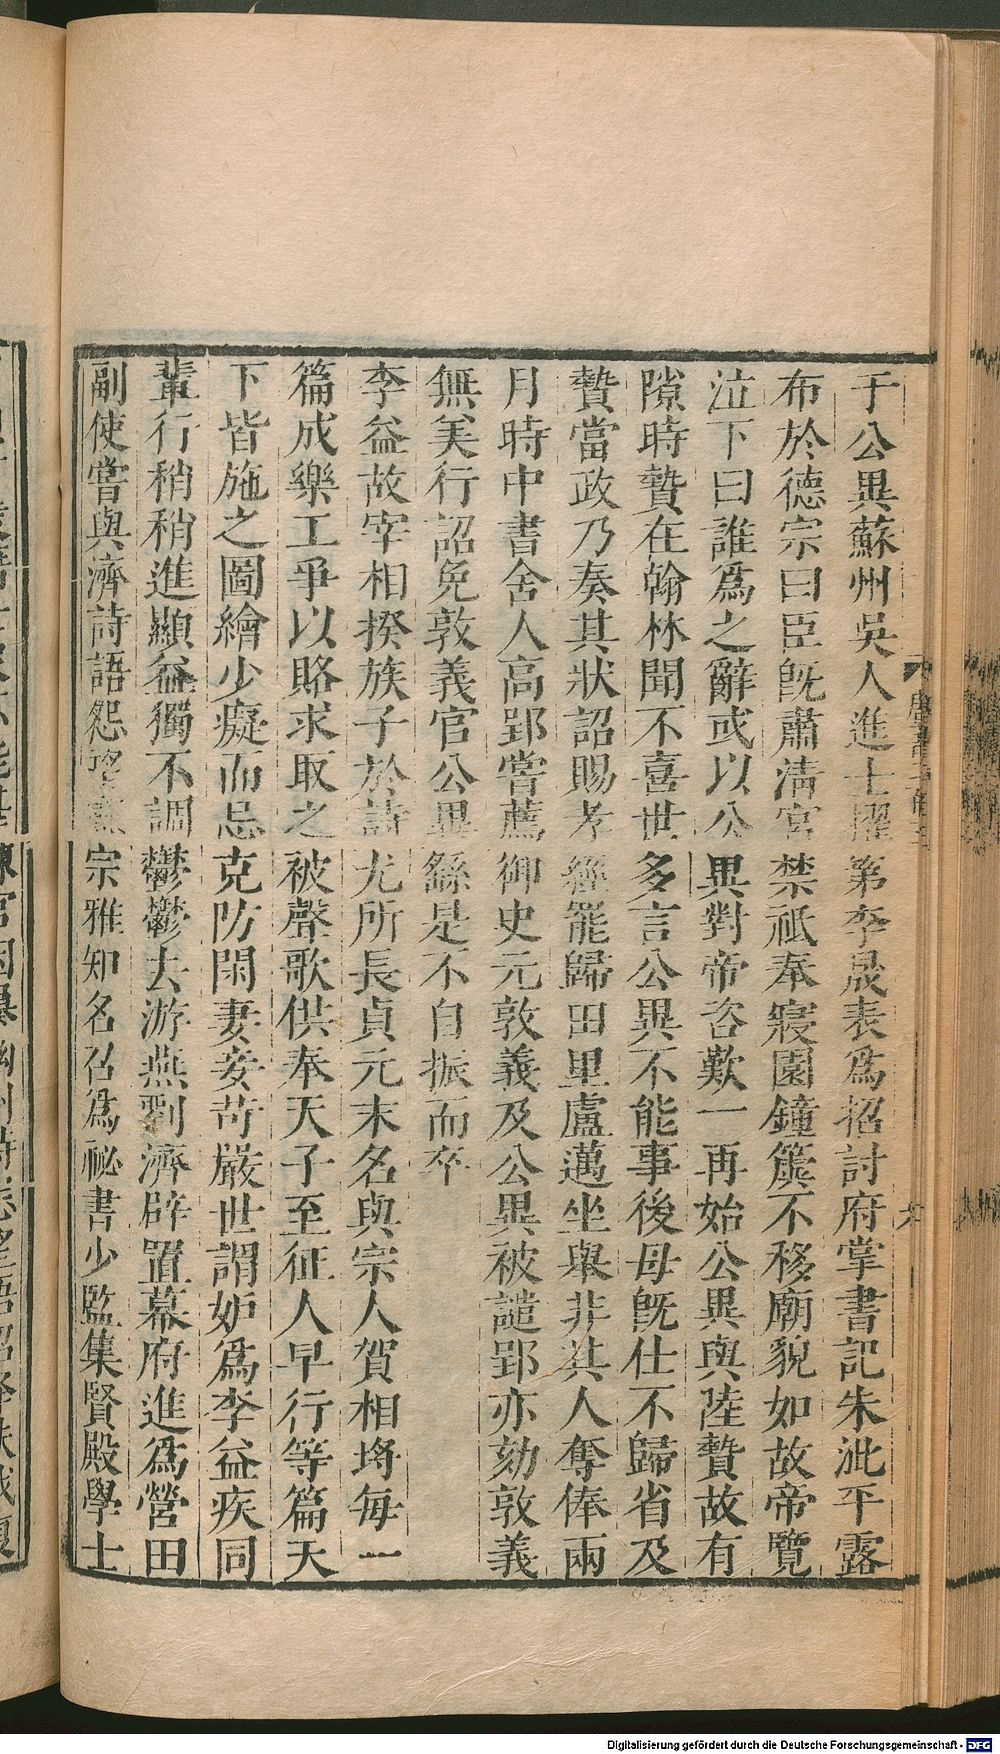 于公異蘇州吳人進士擢第李晟表爲招討府掌書記朱泚平露
布於德宗曰臣旣肅淸宮禁祗奉寢園鐘簴不移廟貌如故帝覽
泣下曰誰爲之辭或以公異對帝咨歎一再始公異與陸贄故有
隙時贄在翰林聞不喜世多言公異不能事後母旣仕不歸省及
贄當政乃奏其狀詔賜孝經罷歸田里盧邁坐舉非其人奪俸兩
月時中書舍人高郢嘗薦御史元敦義及公異被譴郢亦劾敦義
無美行詔免敦義官公異繇是不自振而卒
李益故宰相揆族子於詩尤所長貞元末名與宗人賀相埓每一
篇成樂工爭以賂求取之被聲歌供奉天子至征人早行等篇天
下皆施之圖繪少癡而忌克防閑妻妾苛嚴世謂妒爲李益疾同
輩行稍稍進顯益獨不調鬱鬱去游燕劉濟辟置幕府進爲營田
副使嘗與濟詩語怨望憲宗雅知名召爲祕書少監集賢殿學士
Digitalisierung gefördert durch die Deutsche Forschungsgemeinschaft - DFG